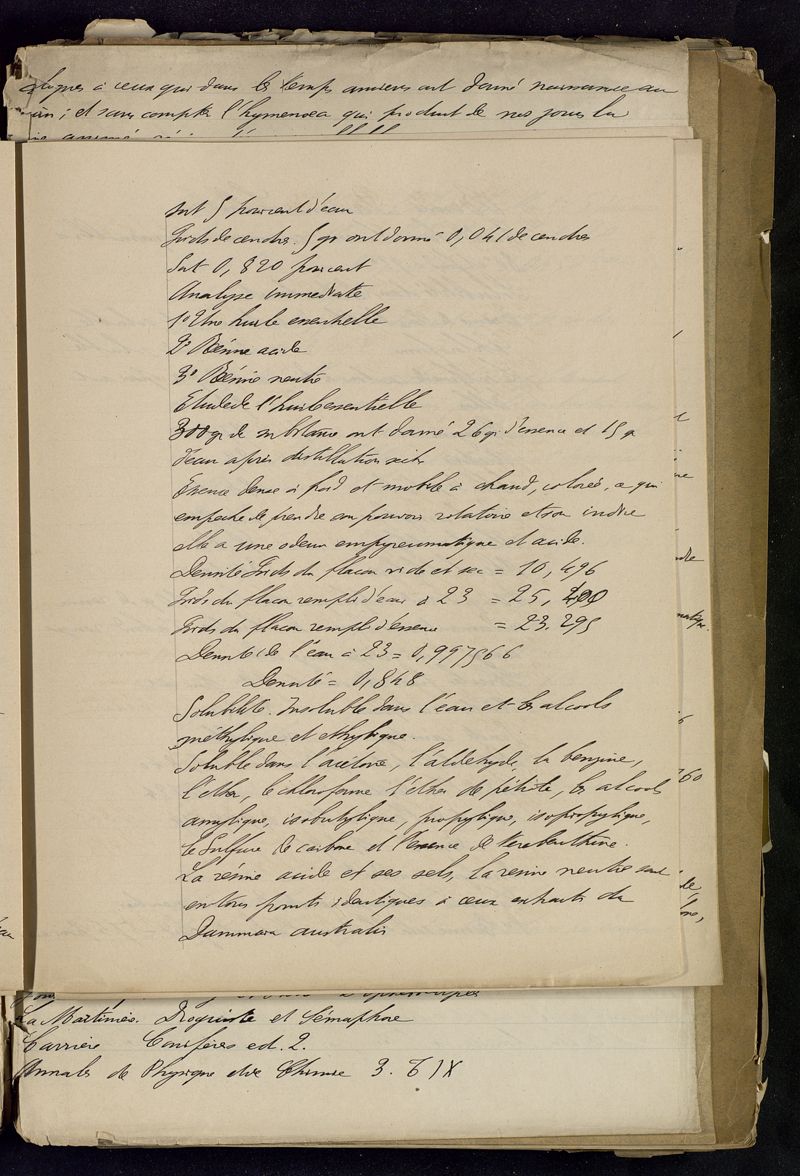 à ceux qui dans les temps anciens ont donné naissance au
; et sans compter l'hymenoea qui produit de nos jours la
soit 5 pourcent d'eau
Poids de cendres. 5 gr ont donné 0,041 de cendres
Soit 0,820 pourcent
Analyse immediate
1º Une huile essentielle
2º Résine acide
3º Résine neutre
Etude de l'huile essentielle
300 gr de substance ont donné 26 gr d'essence et 15 gr
d'eau après distillation
Essence dense à froid et mobile à chaud, colorée, ce qui
empeche de prendre son pouvoir rotatoire et son indice
elle a une odeur empyreumatique et acide.
Densité Poids du flacon vide et sec = 10,496
Poids du flacon rempli d'eau à 23 = 25,400
Poids du flacon rempli d'essence = 23.295
Densité de l'eau à 23 = 0,997566
Densité = 0,848
Solubilité. Insoluble dans l'eau et les alcools
méthylique et éthylique.
Soluble dans l'acétone, l'aldehyde, la benzine,
l'éther, le chloroforme l'éther de pétrole, les alcools
amylique, isobutylique, propylique, isopropylique,
le Sulfure de carbone et l'essence de terebenthine.
La résine acide et ses sels, la resine neutre sont
en tous points identiques à ceux extraits du
Dammara australis
La Martinière. Droguiste et Sémaphore
Carrière Conifères ed. 2.
Annales de Physique et de Chimie 3. T IX